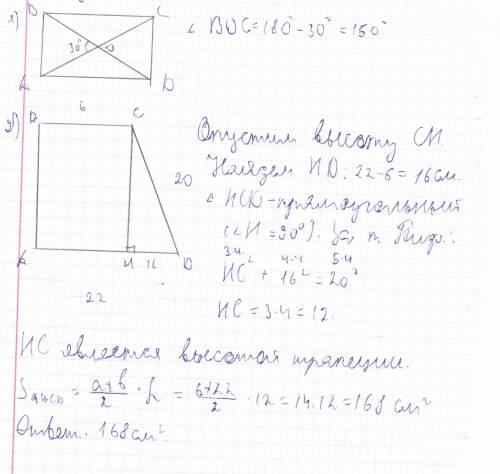 1)
B C
30° O
A D
∠ BOC = 180° - 30° = 150°
2)
B 6 C
20
A H 16 D
22
Опустим высоту CH.
Найдем HD: 22-6 = 16 см.
HCD - прямоугольный
(∠H = 90°). По т. Пифаг.:
3·4 4·4 5·4
HC² + 16² = 20²
HC = 3·4 = 12.
HC является высотой трапеции.
S = a+b/2 · h = 6+22/2 · 12 = 14·12 = 168 см²
Ответ: 168 см².